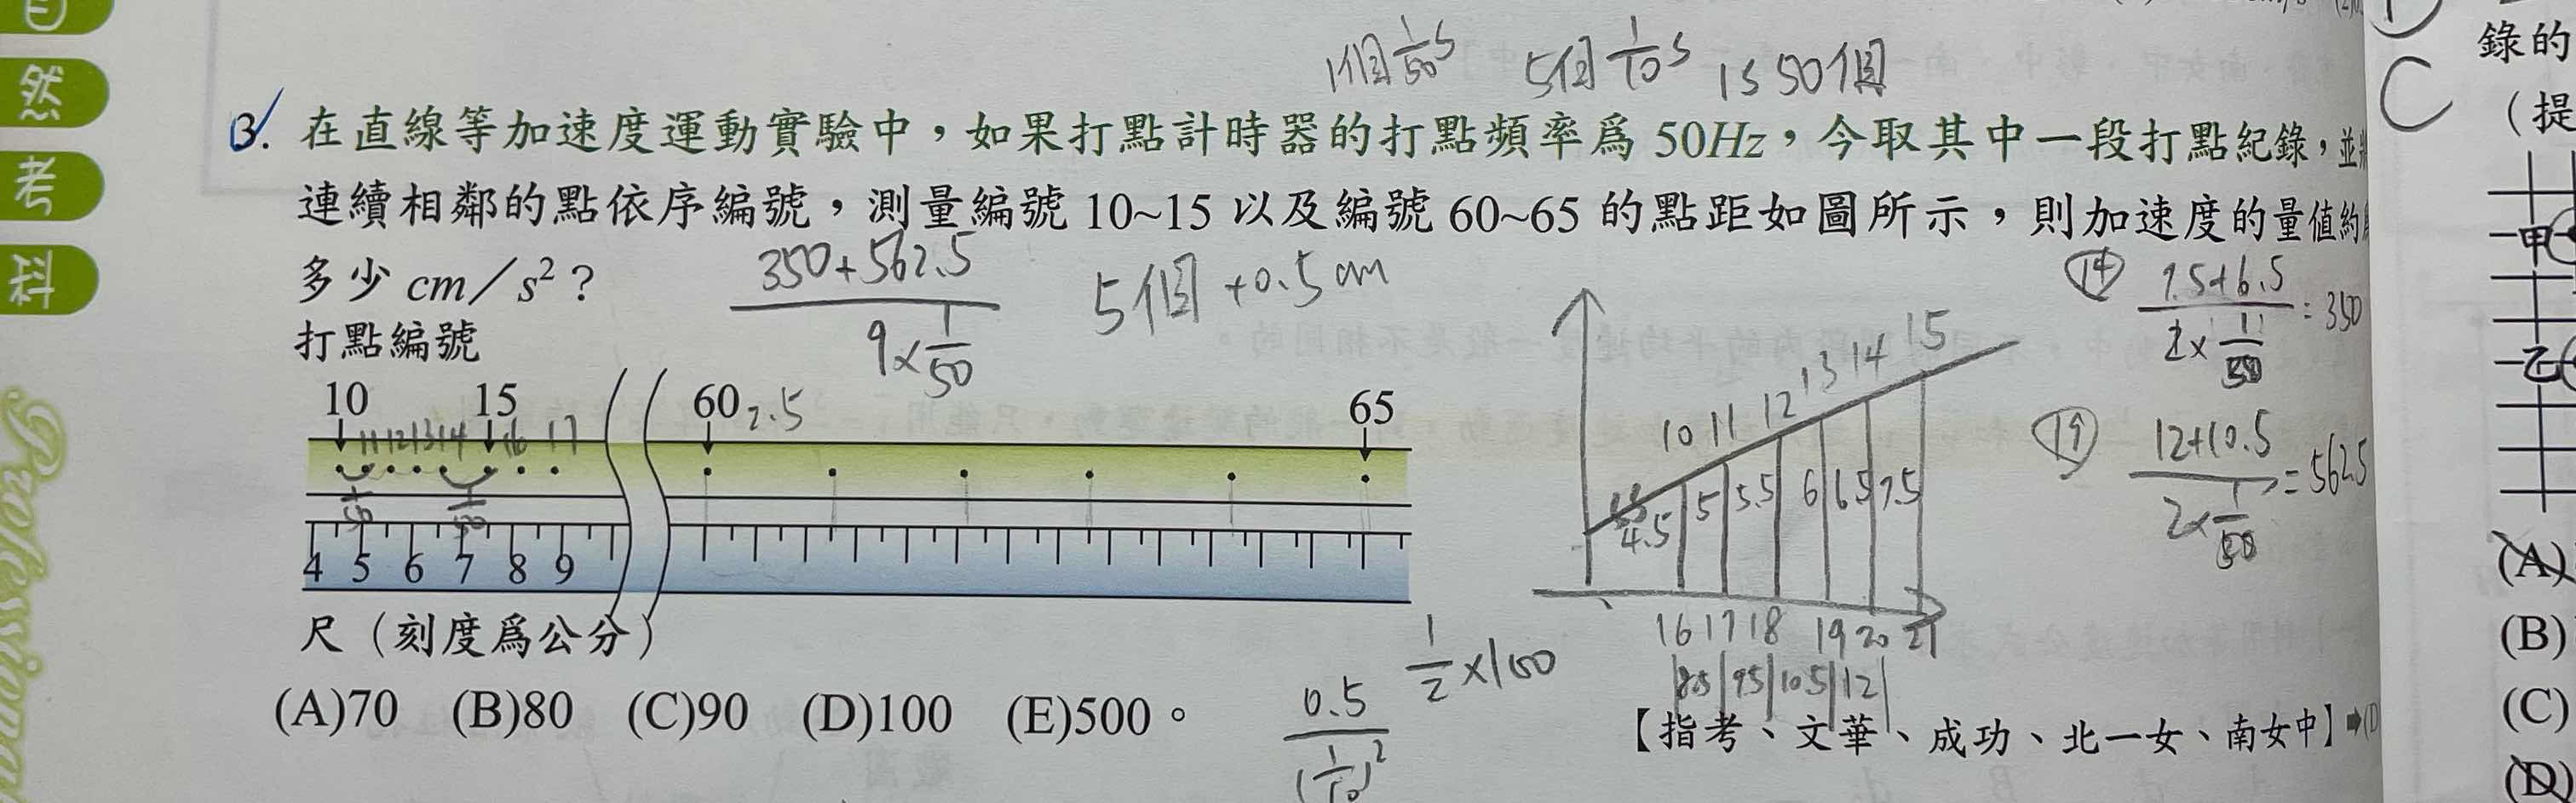 自
然
考
科
Professional
1個 1/50 s 5個 1/10 s 1s 50個
3. 在直線等加速度運動實驗中，如果打點計時器的打點頻率爲 50Hz，今取其中一段打點紀錄，並
連續相鄰的點依序編號，測量編號 10~15 以及編號 60~65 的點距如圖所示，則加速度的量值約
多少 cm／s²？
350+562.5
9×1/50
5個 +0.5cm
打點編號
10 15 60 2.5 65
11 12 13 14 16 17
1/50 1/50
4 5 6 7 8 9
尺（刻度爲公分）
(A)70 (B)80 (C)90 (D)100 (E)500。
0.5
(1/10)²
1/2×100
10 11 12 13 14 15
4.5 5 5.5 6 6.5 7.5
16 17 18 19 20 21
8.5 9.5 10.5 12
⑭ 7.5+6.5
2×1/50
=350
⑲ 12+10.5
2×1/50
=562.5
【指考、文華、成功、北一女、南女中】➡(D
C
錄的
（提
甲
乙
(A)
(B)
(C)
(D)